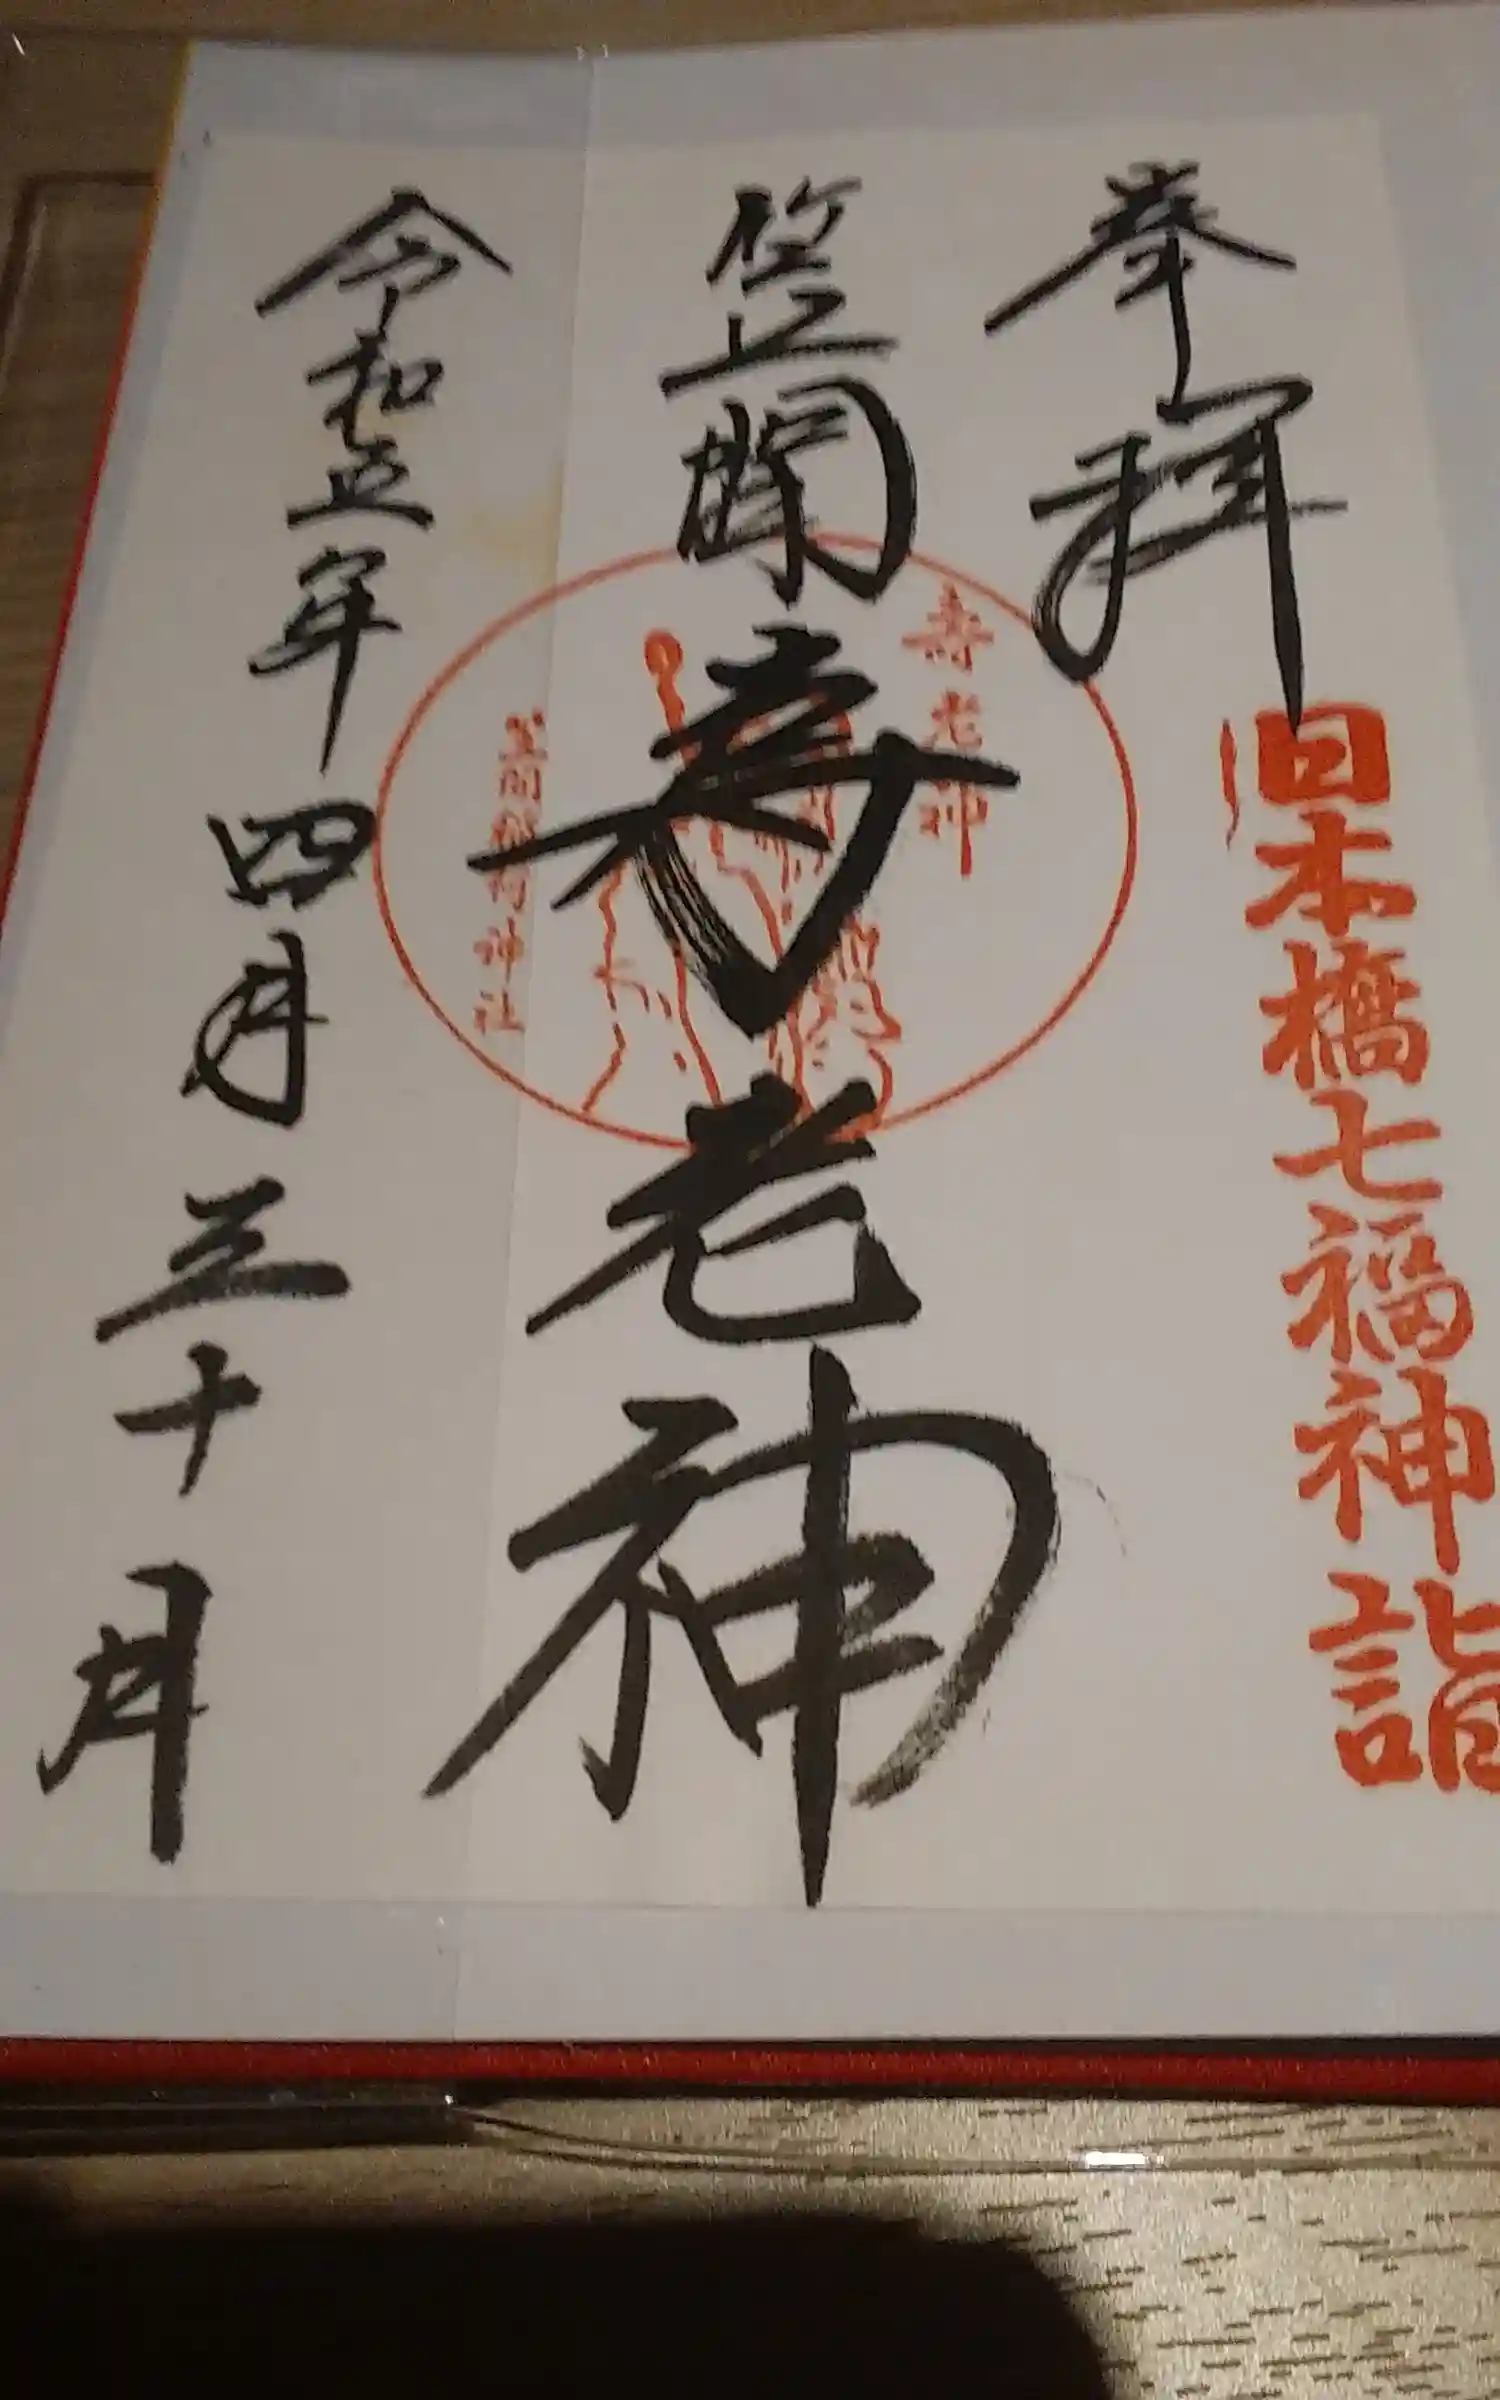 奉拝
日本橋七福神詣
笠間
寿老神
寿老神
笠間稲荷神社
令和五年四月三十日